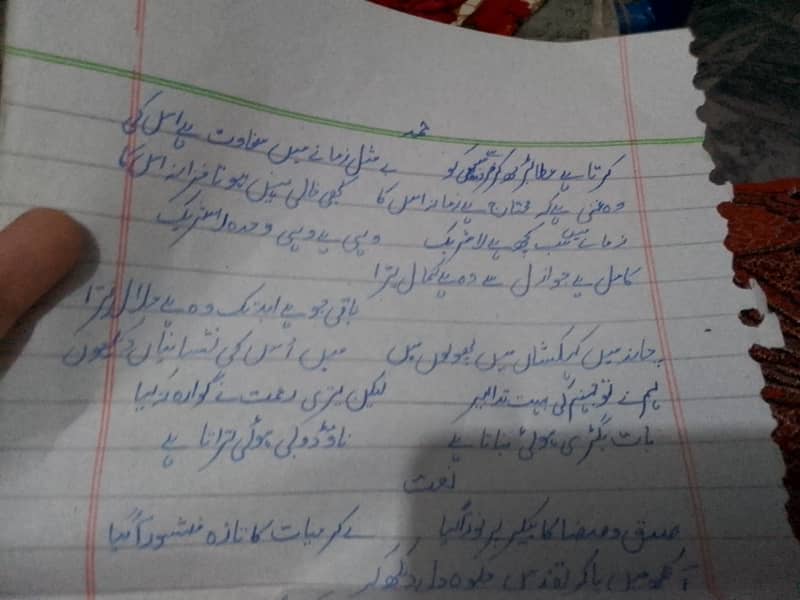 حمد
کرتا ہے عطا ہر گھڑی کو بے مثل زمانے میں سخاوت ہے اس کی
وہ غنی ہے کہ محتاج ہے زمانہ اس کا کبھی خالی نہیں ہوتا خزانہ اس کا
زمانے میں سب کچھ ہے لا شریک وہی ہے وہی وحدہ لا شریک
کامل ہے جو ازل سے وہ ہے کمال تیرا
باقی جو ہے ابد تک وہ ہے جلال تیرا
چاند میں کہکشاں میں پھولوں میں میں اس کی نشانیاں دیکھوں
ہم نے تو جہنم کی بہت تدابیر لیکن تیری رحمت نے گوارہ نہ کیا
بات بگڑی ہوئی بناتا ہے ناؤ ڈوبی ہوئی تراتا ہے
نعت
صدق و صفا کا پیکر پر نور آگیا لے کر حیات کا تازہ منشور آگیا
آنکھوں میں پاکر تقدس جلوہ دیکھ کر